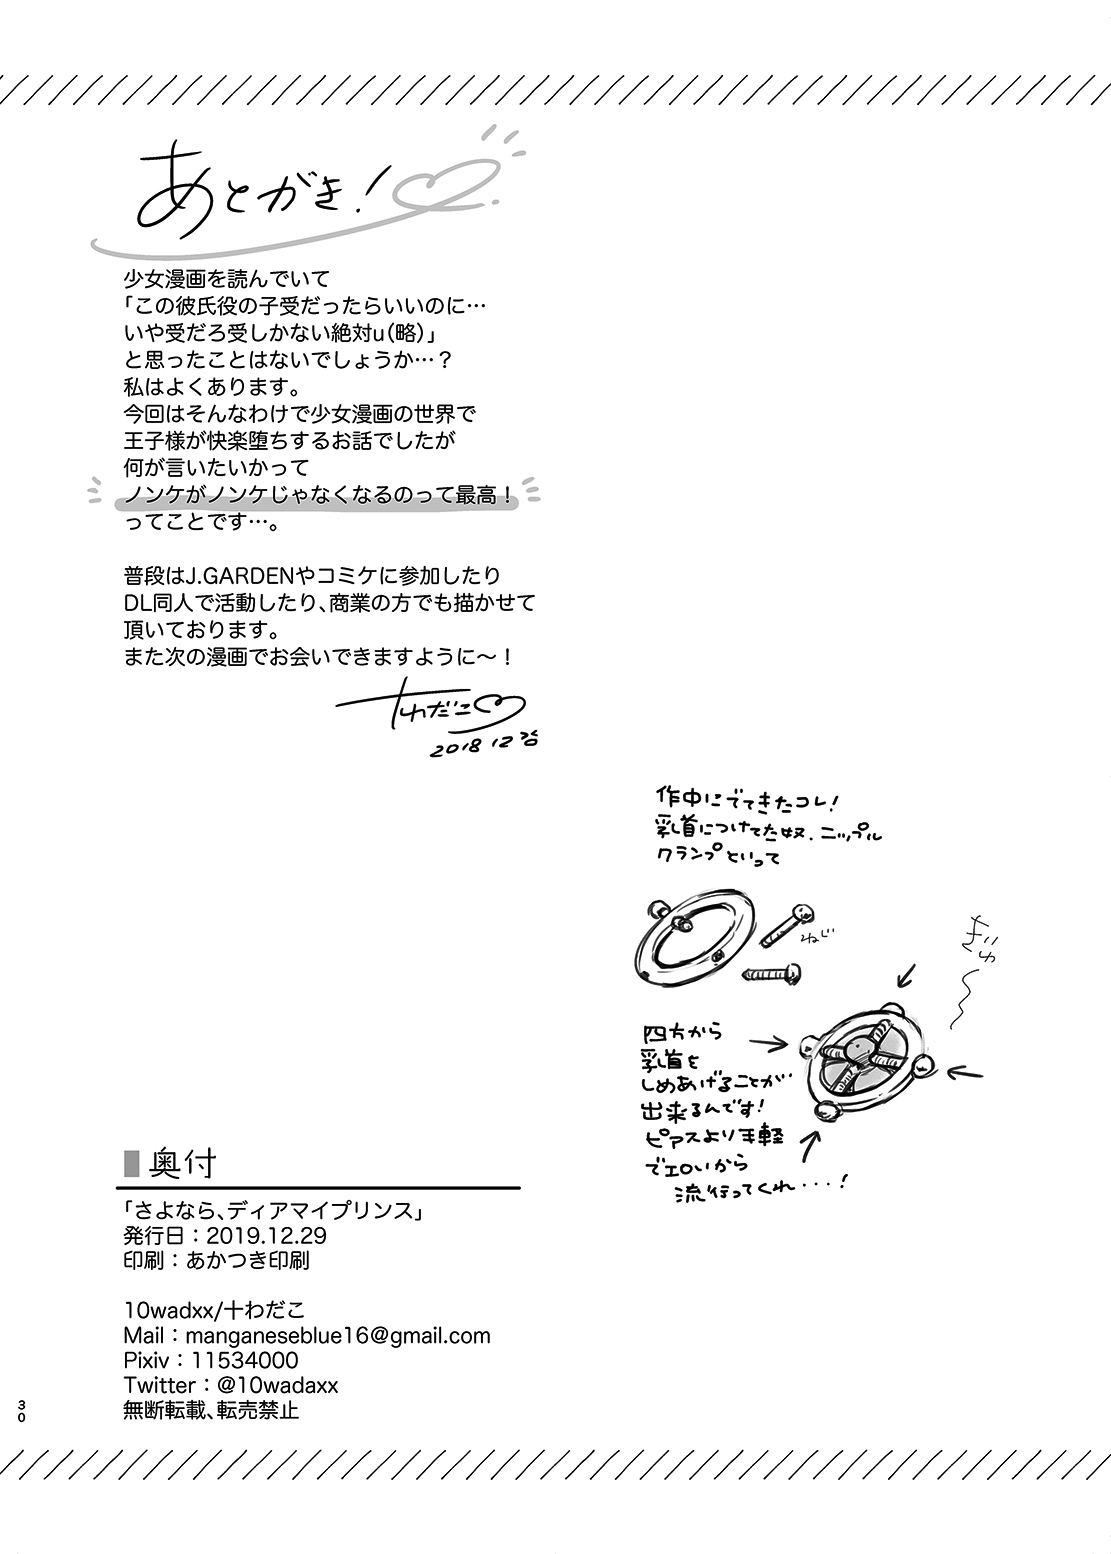 あとがき!
少女漫画を読んでいて
「この彼氏役の子受だったらいいのに…
いや受だろ受しかない絶対u(略)」
と思ったことはないでしょうか…？
私はよくあります。
今回はそんなわけで少女漫画の世界で
王子様が快楽堕ちするお話でしたが
何が言いたいかって
ノンケがノンケじゃなくなるのって最高！
ってことです…。
普段はJ.GARDENやコミケに参加したり
DL同人で活動したり、商業の方でも描かせて
頂いております。
また次の漫画でお会いできますように〜！
十わだこ
2018 12
作中にでてきたコレ!
乳首につけてた奴、ニップル
クランプといって
ねじ
ぎゅ
四方から
乳首を
しめあげることが
出来るんです!
ピアスより手軽
でエロいから
流行ってくれ・・・!
奥付
「さよなら、ディアマイプリンス」
発行日：2019.12.29
印刷：あかつき印刷
10wadxx/十わだこ
Mail：manganeseblue16@gmail.com
Pixiv：11534000
Twitter：@10wadaxx
無断転載、転売禁止
30